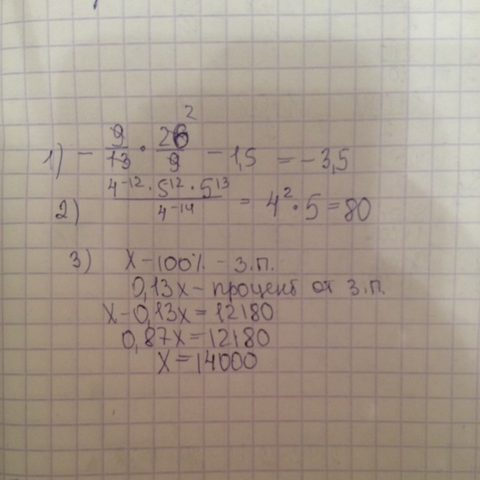 1) - 9/13 · 26/9 2 - 1,5 = -3,5
2) 4^-12 · 5^12 · 5^13 / 4^-14 = 4^2 · 5 = 80
3) X - 100% - З.П.
0,13X - процент от З.П.
X - 0,13X = 12180
0,87X = 12180
X = 14000